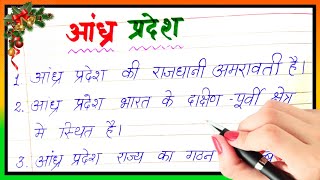 आंध्र प्रदेश
1. आंध्र प्रदेश की राजधानी अमरावती है।
2. आंध्र प्रदेश भारत के दक्षिण पूर्वी क्षेत्र
में स्थित है।
3. आंध्र प्रदेश राज्य का गठन